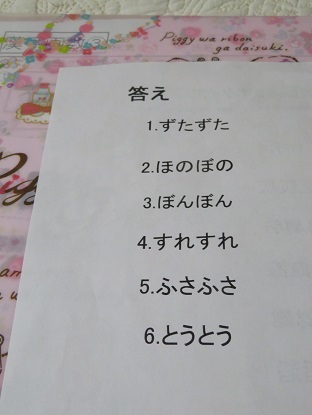 Piggy wa ribon
ga daisuki.
答え
1.ずたずた
2.ほのぼの
3.ぼんぼん
4.すれすれ
5.ふさふさ
6.とうとう